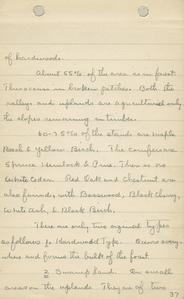 of hardwoods.
About 55% of the area is in forest.
This occurs in broken patches. Both the
valleys and uplands are agricultural only
the slopes remaining in timber.
60-75% of the stands are maple
Beech & Yellow Birch. The conifers are
Spruce, Hemlock & Pine. There is no
White Cedar. Red Oak and Chestnut are
also found, with Basswood, Black Cherry,
White Ash, & Black Birch.
There are only two original types
as follows 1. Hardwood Type. Occurs every-
where and forms the bulk of the forest.
2. Swamp land. On small
areas on the uplands. They are of two
37